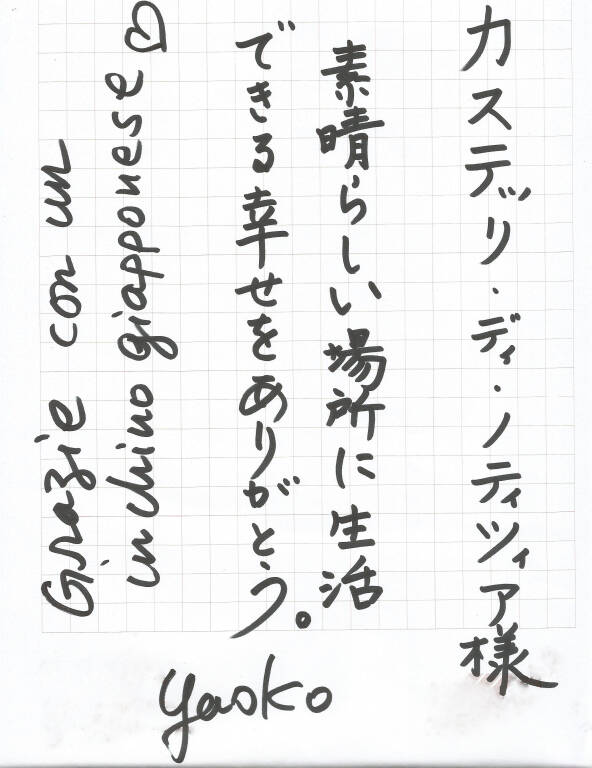 カステリ・ディ・ノティツィア様
素晴らしい場所に生活
できる幸せをありがとう。
Grazie con un
inchino giapponese ♡
yaoko